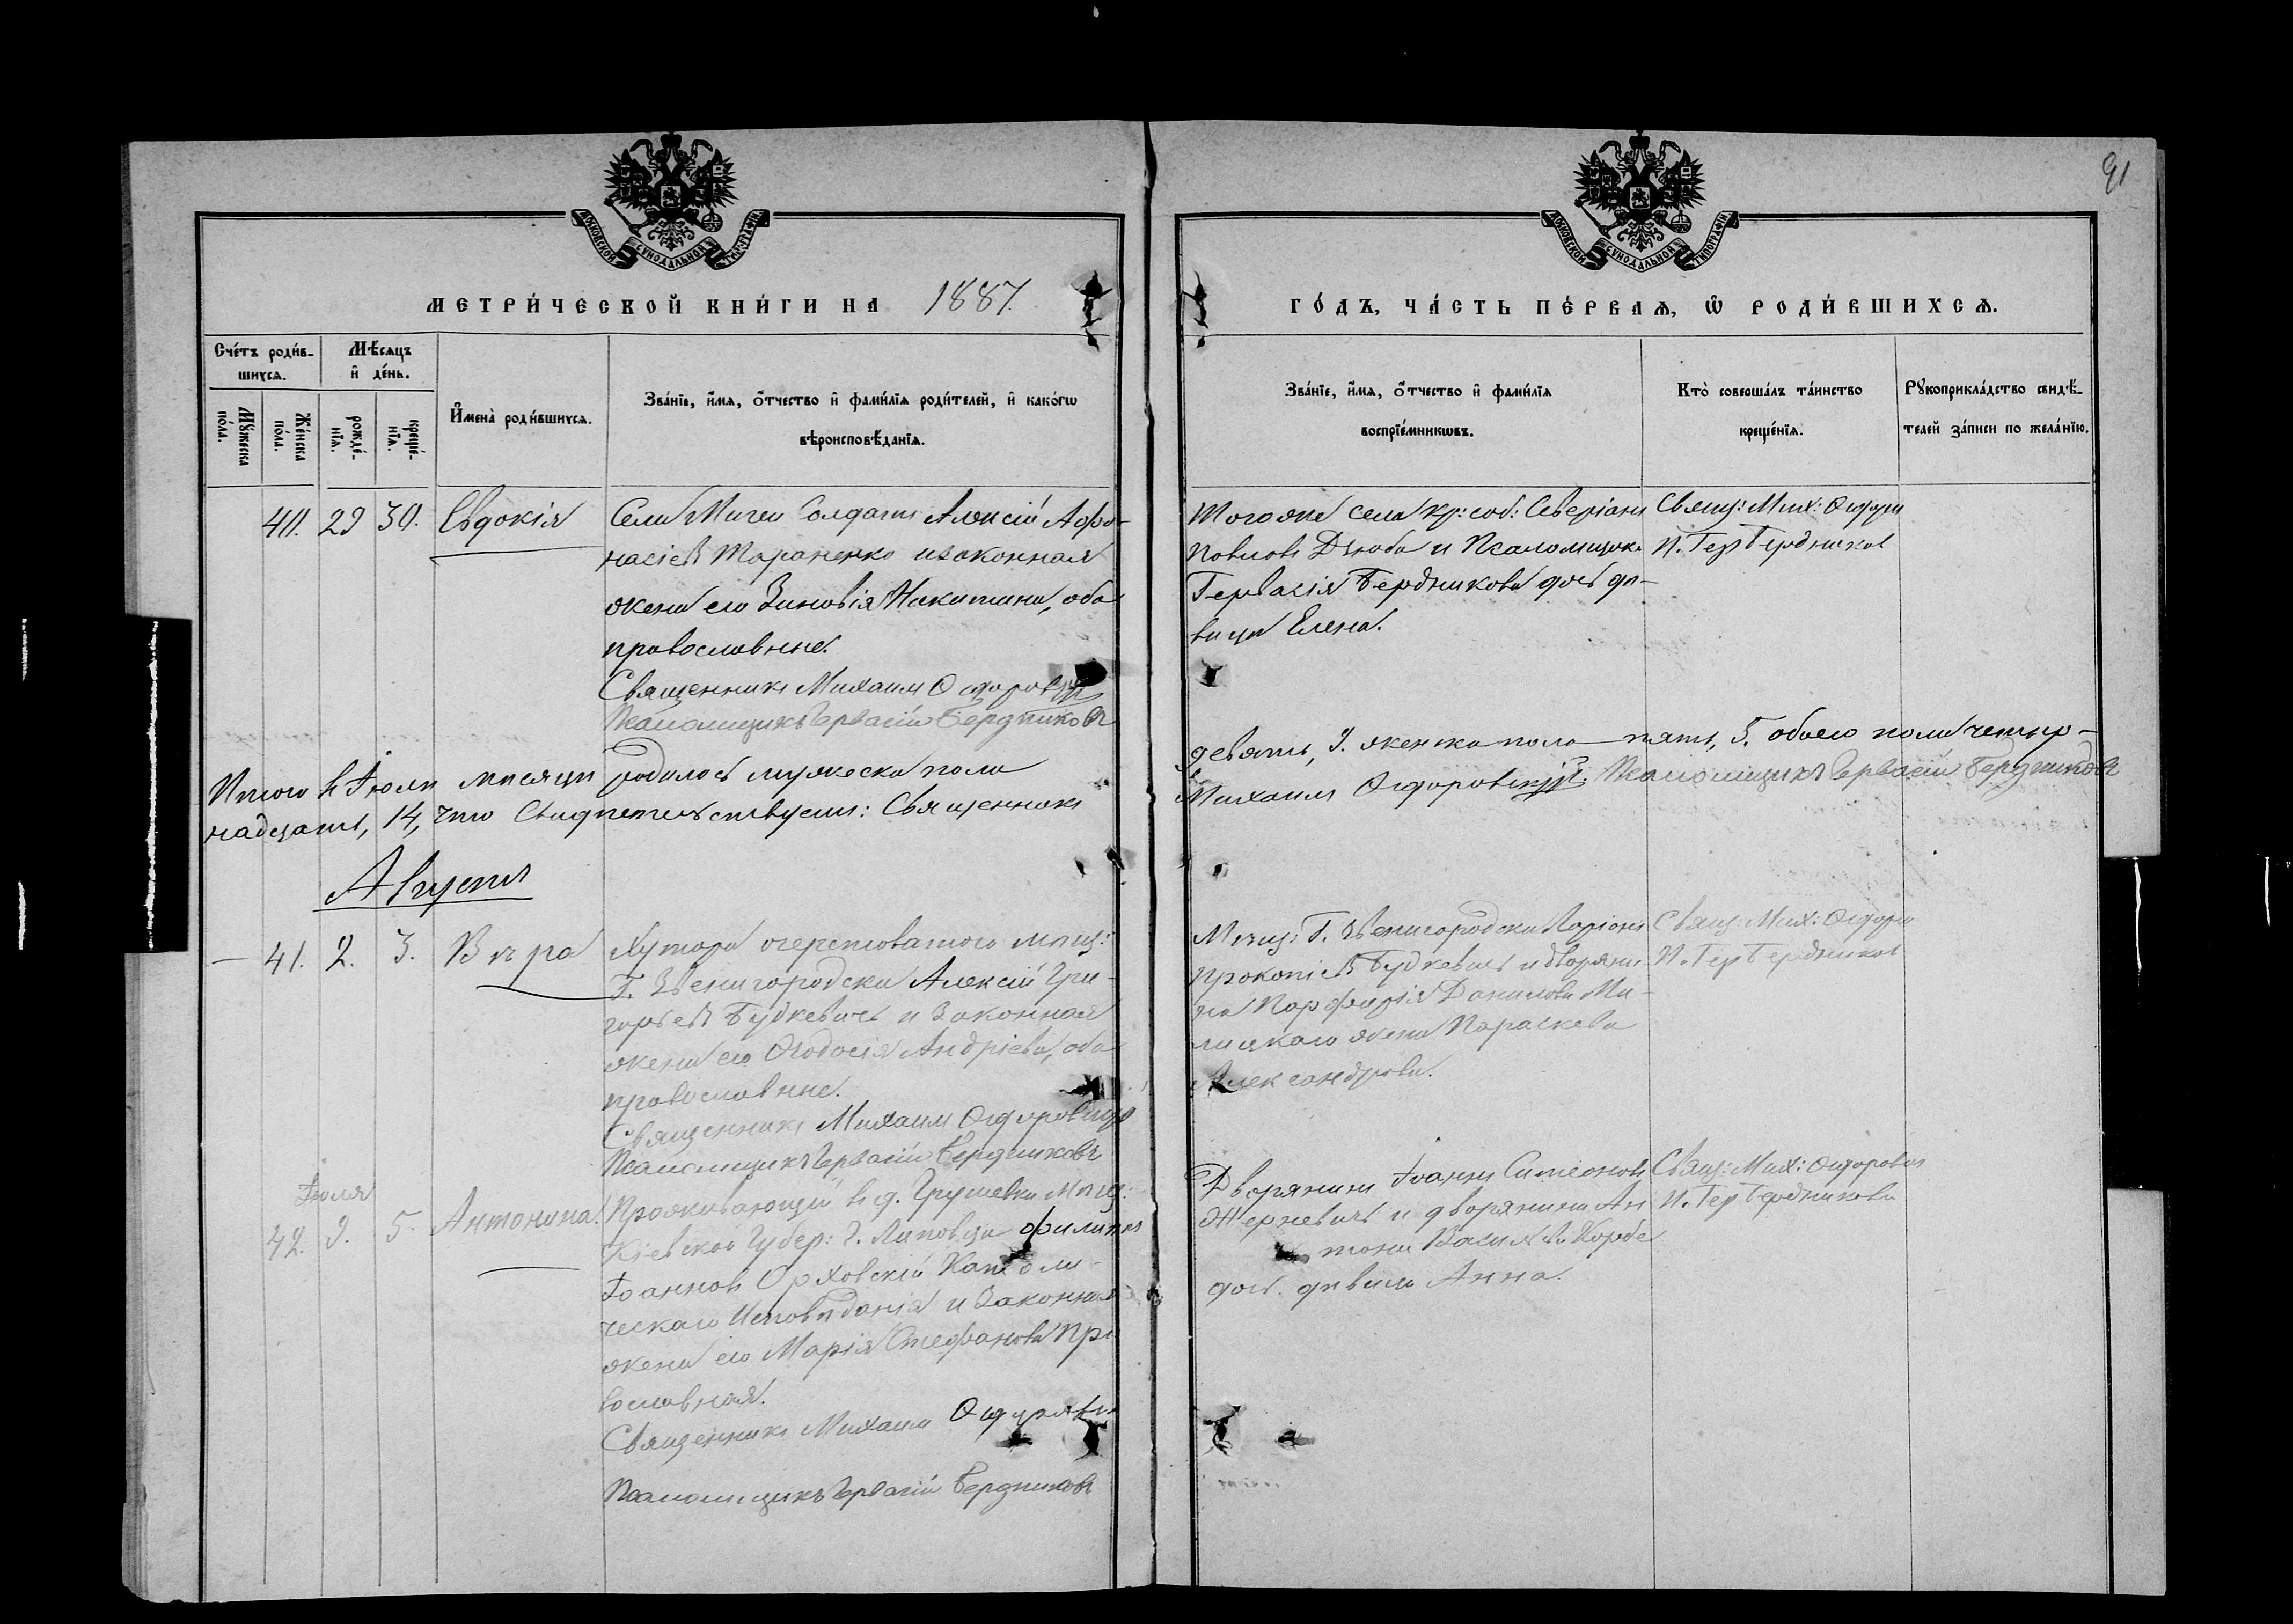 91
МОСКОВСКОЙ СУНОДАЛЬНОЙ ТИПОГРАФІИ
МОСКОВСКОЙ СУНОДАЛЬНОЙ ТИПОГРАФІИ
МЕТРИ́ЧЕСКОЙ КНИ́ГИ НА 1887.
ГО́ДЪ, ЧА́СТЬ ПЕ́РВАѦ, Ѡ҆ РОДИ́ВШИХСѦ.
Сче́тъ роди́в-
шихсѧ.
Мѣ́сѧцъ
и҆ де́нь.
Мꙋ́жеска
по́ла.
Же́нска
по́ла.
рожде́-
нїѧ.
креще́-
нїѧ.
И҆мена̀ роди́вшихсѧ.
Зва́нїе, и҆́мѧ, о҆́тчество и҆ фами́лїѧ роди́телей, и҆ како́гѡ
вѣроисповѣ́данїѧ.
Зва́нїе, и҆́мѧ, о҆́тчество и҆ фами́лїѧ
воспрїе́мникѡвъ.
Кто̀ соверша́лъ та́инство
креще́нїѧ.
Рꙋкоприкла́дство свидѣ́-
телей за́писи по жела́нїю.
40. 29 30. Евдокія
Села Мигеи Солдатъ Алексій Афа-
насіевъ Тараненко и законная
жена его Зиновія Никитина, оба
православные.
Священникъ Михаилъ Ѳедоровскій
Псаломщикъ Гервасій Бердниковъ
Тогоже села кр: соб: Северіанъ
Павловъ Дзюба и Псаломщика
Гервасія Бердникова дочь дѣ-
вица Елена.
Свящ: Мих: Ѳедоро
П. Гер Бердников
Итого въ Іюлѣ мѣсяцѣ родилось мужеска пола
девять, 9. женска пола пять, 5. обоего пола четыр-
надцать, 14, что свидѣтельствуемъ: Священникъ
Михаилъ Ѳедоровскій. Псаломщикъ Гервасій Бердниковъ
Августъ
— 41. 2. 3. Вѣра
Хутора Очеретоватого мѣщ:
Г. Звенигородски Алексій Гри-
горьевъ Будкевичъ и законная
жена его Ѳеодосія Андріева, оба
православные.
Священникъ Михаилъ Ѳедоровскій
Псаломщикъ Гервасій Бердниковъ
Мѣщ: Г. Звенигородски Ларіонъ
Прокопіевъ Будкевичъ и дворяни-
на Порфирія Данилова Ми-
жена Параскева
Александрова.
Свящ: Мих: Ѳедоро
П. Гер Бердников
Іюля
42. 9. 5. Антонина.
Проживающій въ д. Грушевки мѣщ:
Кіевской Губер: Г. Липовца Филиппъ
Іоанновъ Орховскій Католи-
ческаго Исповѣданія и законная
жена его Марія Стефанова Пра
вославная.
Священникъ Михаилъ Ѳедоровскій
Псаломщикъ Гервасій Бердниковъ
Дворянинъ Іоаннъ Симеоновъ
Жерневичъ и дворянина Ан
тона Васильев Корбе
доч. дѣвица Анна.
Свящ: Мих: Ѳедоровск
П. Гер Бердникова